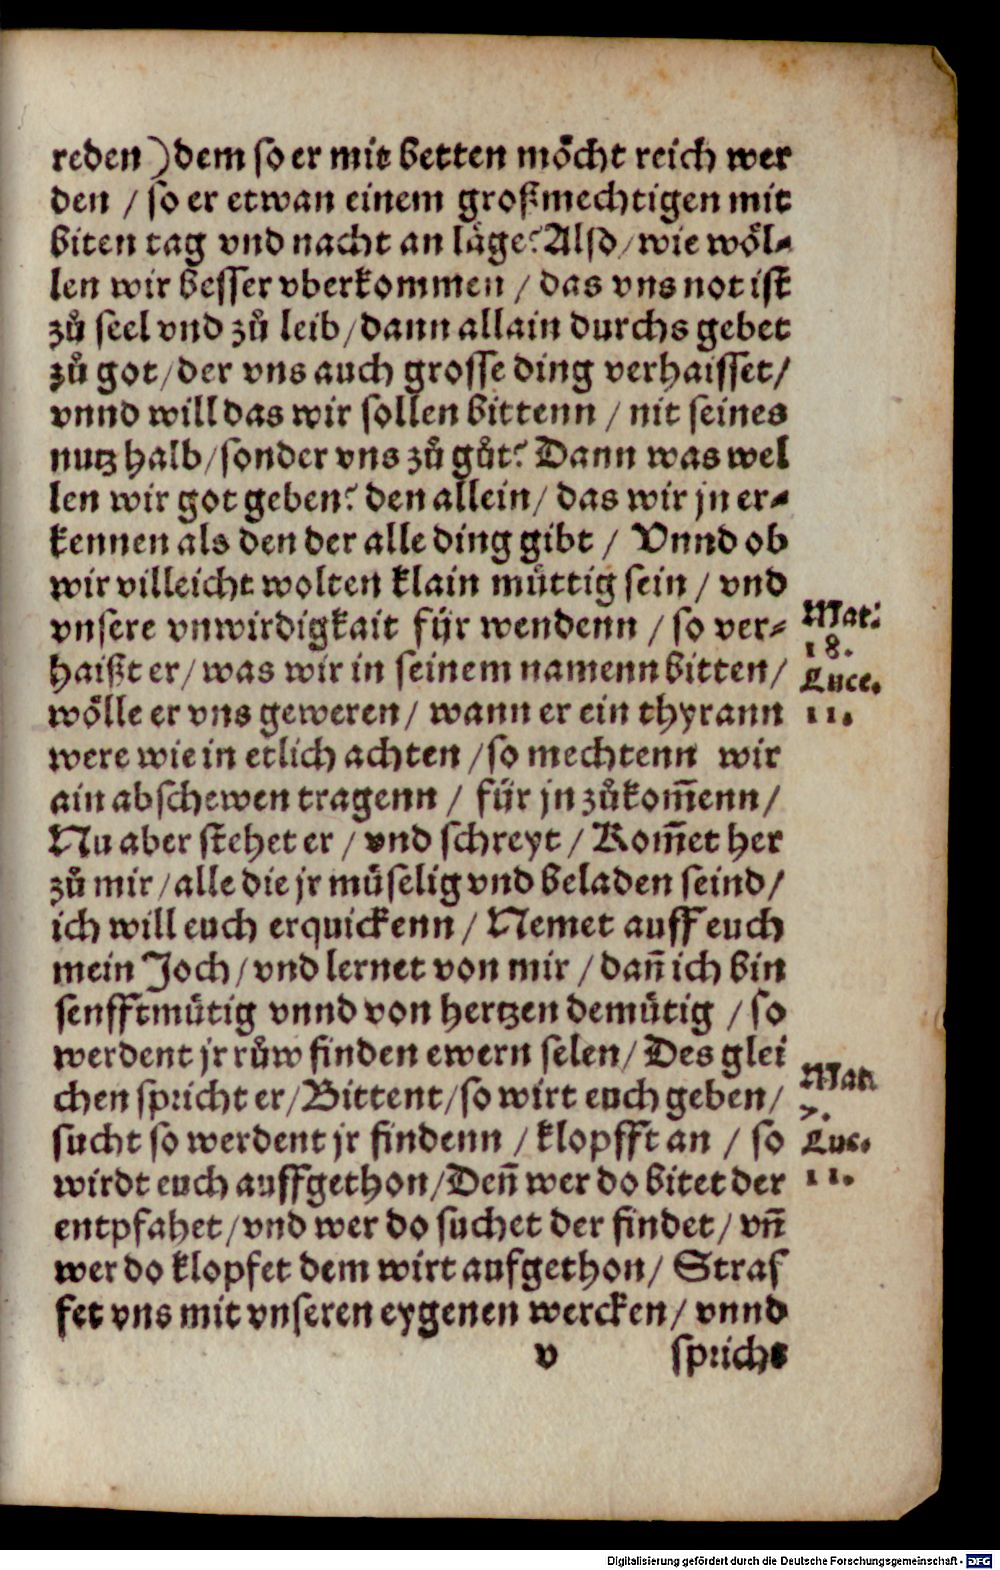 reden) dem so er mit betten möcht reich wer
den / so er etwan einem großmechtigen mit
biten tag vnd nacht an läge? Also / wie wöl-
len wir besser vberkommen / das vns not ist
zů seel vnd zů leib / dann allain durchs gebet
zů got / der vns auch grosse ding verhaisset /
vnnd will das wir sollen bittenn / nit seines
nutz halb / sonder vns zů gůt? Dann was wel
len wir got geben? den allein / das wir jn er-
kennen als den der alle ding gibt / Vnnd ob
wir villeicht wolten klain müttig sein / vnd
vnsere vnwirdigkait für wendenn / so ver-
haißt er / was wir in seinem namenn bitten /
wölle er vns geweren / wann er ein thyrann
were wie in etlich achten / so mechtenn wir
ain abschewen tragenn / für jn zůkom̄enn /
Nu aber stehet er / vnd schreyt / Kom̄et her
zů mir / alle die jr müselig vnd beladen seind /
ich will euch erquickenn / Nemet auff euch
mein Joch / vnd lernet von mir / dan̄ ich bin
senfftmütig vnnd von hertzen demütig / so
werdent jr růw finden ewern selen / Des glei
chen spricht er / Bittent / so wirt euch geben /
sucht so werdent jr findenn / klopfft an / so
wirdt euch auffgethon / Den̄ wer do bitet der
entpfahet / vnd wer do suchet der findet / vn̄
wer do klopfet dem wirt aufgethon / Straf
fet vns mit vnseren eygenen wercken / vnnd
v spricht
Mat.
18.
Luce.
11.
Mat.
7.
Luc.
11.
Digitalisierung gefördert durch die Deutsche Forschungsgemeinschaft - DFG